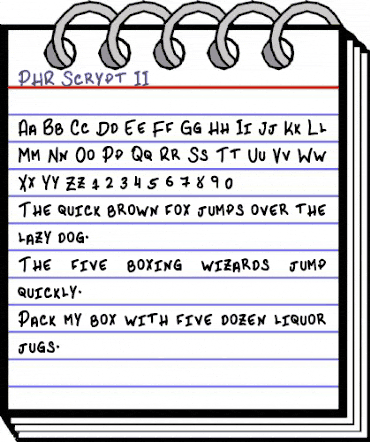 PHR Scrypt II
Aa Bb Cc Dd Ee Ff Gg Hh Ii Jj Kk Ll
Mm Nn Oo Pp Qq Rr Ss Tt Uu Vv Ww
Xx Yy Zz 1 2 3 4 5 6 7 8 9 0
The quick brown fox jumps over the
lazy dog.
The five boxing wizards jump
quickly.
Pack my box with five dozen liquor
jugs.